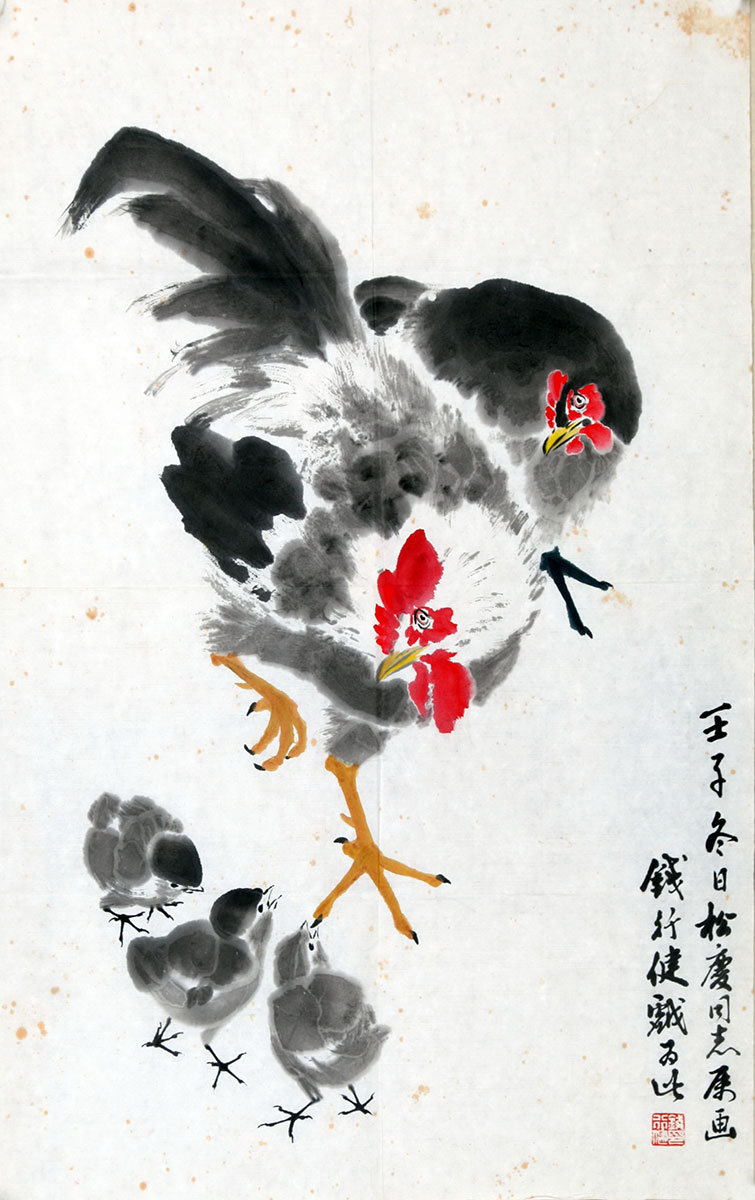 壬子冬日松慶同志属画
钱行健戲为此